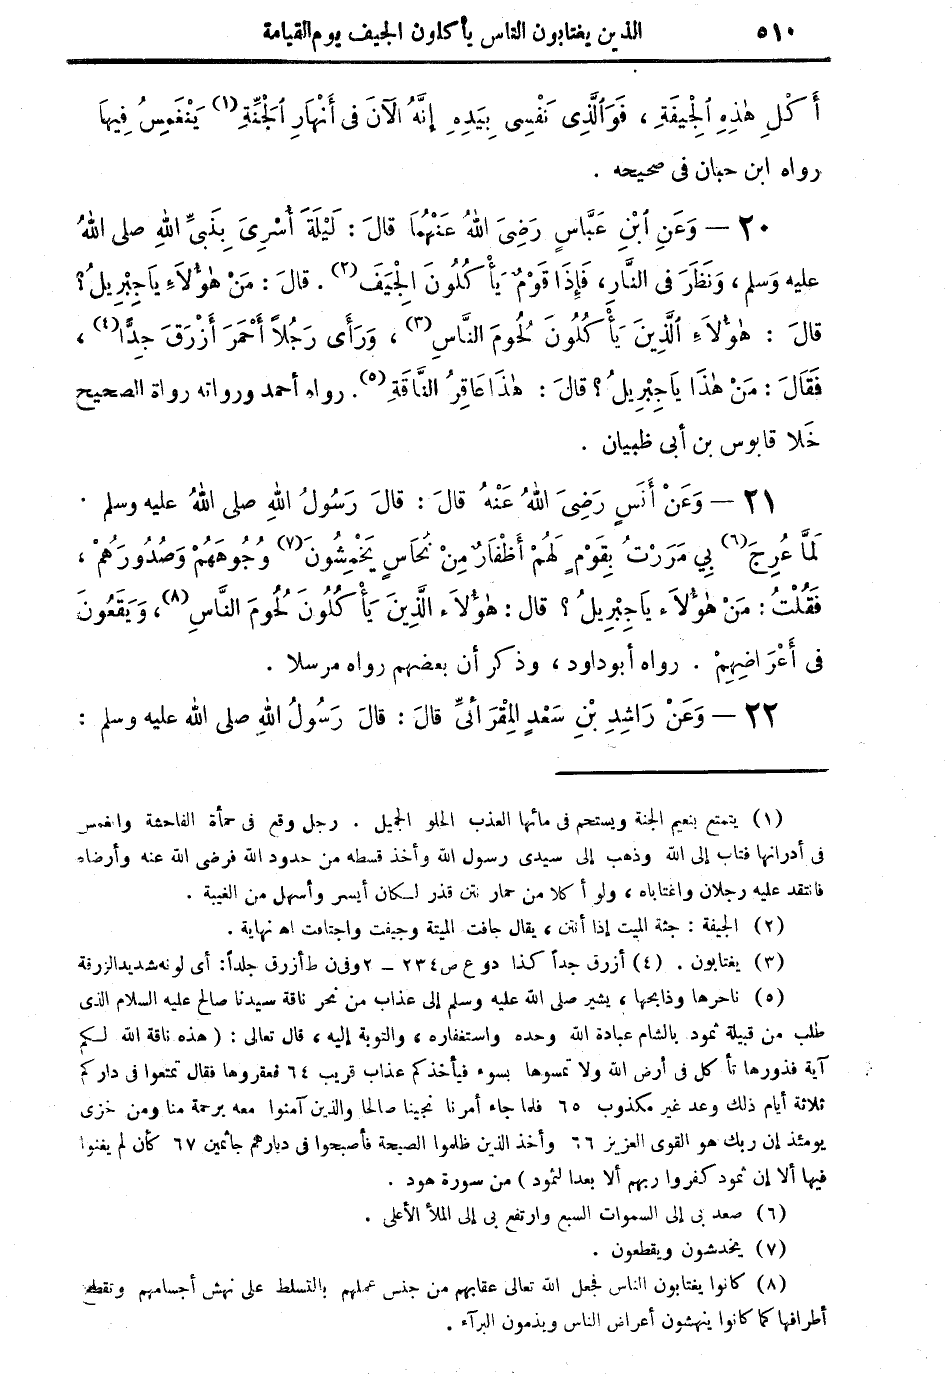 ٥١٠ الذين يغتابون الناس يأكلون الجيف يوم القيامة
أَكْلِ هٰذِهِ الْجِيفَةِ ، فَوَالَّذِى نَفْسِى بِيَدِهِ إِنَّهُ الآنَ فِى أَنْهَارِ الْجَنَّةِ (١) يَنْغَمِسُ فِيهَا
رواه ابن حبان فى صحيحه .
٢٠ — وَعَنِ ابْنِ عَبَّاسٍ رَضِىَ اللهُ عَنْهُمَا قَالَ : لَيْلَةَ أُسْرِىَ بِنَبِىِّ اللهِ صلى اللهُ
عليه وَسلم ، وَنَظَرَ فى النَّارِ ، فَإِذَا قَوْمٌ يَأْكُلُونَ الْجِيَفَ (٢) . قَالَ : مَنْ هٰؤُلَاءِ يَاجِبْرِيلُ ؟
قَالَ : هٰؤُلَاءِ الَّذِينَ يَأْكُلُونَ لُحُومَ النَّاسِ (٣) ، وَرَأَى رَجُلاً أَحْمَرَ أَزْرَقَ جِدًّا (٤) ،
فَقَالَ : مَنْ هٰذَا يَاجِبْرِيلُ ؟ قَالَ : هٰذَا عَاقِرُ النَّاقَةِ (٥) . رواه أحمد ورواته رواة الصحيح
خَلا قابوس بن أبى ظبيان .
٢١ — وَعَنْ أَنَسٍ رَضِىَ اللهُ عَنْهُ قَالَ : قَالَ رَسُولُ اللهِ صلى اللهُ عليه وسلم .
لَمَّا عُرِجَ (٦) بِي مَرَرْتُ بِقَوْمٍ لَهُمْ أَظْفَارٌ مِنْ نُحَاسٍ يَخْمِشُونَ (٧) وُجُوهَهُمْ وَصُدُورَهُمْ ،
فَقُلْتُ : مَنْ هٰؤُلَاء يَاجِبْرِيلُ ؟ قال : هٰؤُلَاء الَّذِينَ يَأْكُلُونَ لُحُومَ النَّاسِ (٨) ، وَيَقَعُونَ
فى أَعْرَاضِهِمْ . رواه أبو داود ، وذكر أن بعضهم رواه مرسلا .
٢٢ — وَعَنْ رَاشِدِ بْنِ سَعْدٍ المِقْرَائىِّ قَالَ : قَالَ رَسُولُ اللهِ صلى الله عليه وسلم :
(١) يتمتع بنعيم الجنة ويستحم فى مائها العذب الحلو الجميل . رجل وقع فى حمأة الفاحشة وانغمس
فى أدرانها فتاب إلى الله وذهب إلى سيدى رسول الله وأخذ قسطه من حدود الله فرضى الله عنه وأرضاه
فانتقد عليه رجلان واغتاباه ، ولو أكلا من حمار نتن قذر لكان أيسر وأسهل من الغيبة .
(٢) الجيفة : جثة الميت إذا أنتن ، يقال جافت الميتة وجيفت واجتافت اه نهاية .
(٣) يغتابون . (٤) أزرق جداً كذا د و ع ص ٢٣٤ — ٢ وفى ن ط أزرق جلداً : أى لونه شديد الزرقة
(٥) ناحرها وذابحها ، يشير صلى الله عليه وسلم إلى عذاب من نحر ناقة سيدنا صالح عليه السلام الذى
طلب من قبيلة ثمود بالشام عبادة الله وحده واستغفاره ، والتوبة إليه ، قال تعالى : ( هذه ناقة الله لكم
آية فذروها تأكل فى أرض الله ولا تمسوها بسوء فيأخذكم عذاب قريب ٦٤ فعقروها فقال تمتعوا فى داركم
ثلاثة أيام ذلك وعد غير مكذوب ٦٥ فلما جاء أمرنا نجينا صالحا والذين آمنوا معه برحمة منا ومن خزى
يومئذ إن ربك هو القوى العزيز ٦٦ وأخذ الذين ظلموا الصيحة فأصبحوا فى ديارهم جاثمين ٦٧ كأن لم يغنوا
فيها ألا إن ثمود كفروا ربهم ألا بعدا لثمود ) من سورة هود .
(٦) صعد بى إلى السموات السبع وارتفع بى إلى الملأ الأعلى .
(٧) يخدشون ويقطعون .
(٨) كانوا يغتابون الناس فجعل الله تعالى عقابهم من جنس عملهم بالتسلط على نهش أجسامهم وتقطيع
أطرافها كما كانوا ينهشون أعراض الناس ويذمون البرآء .